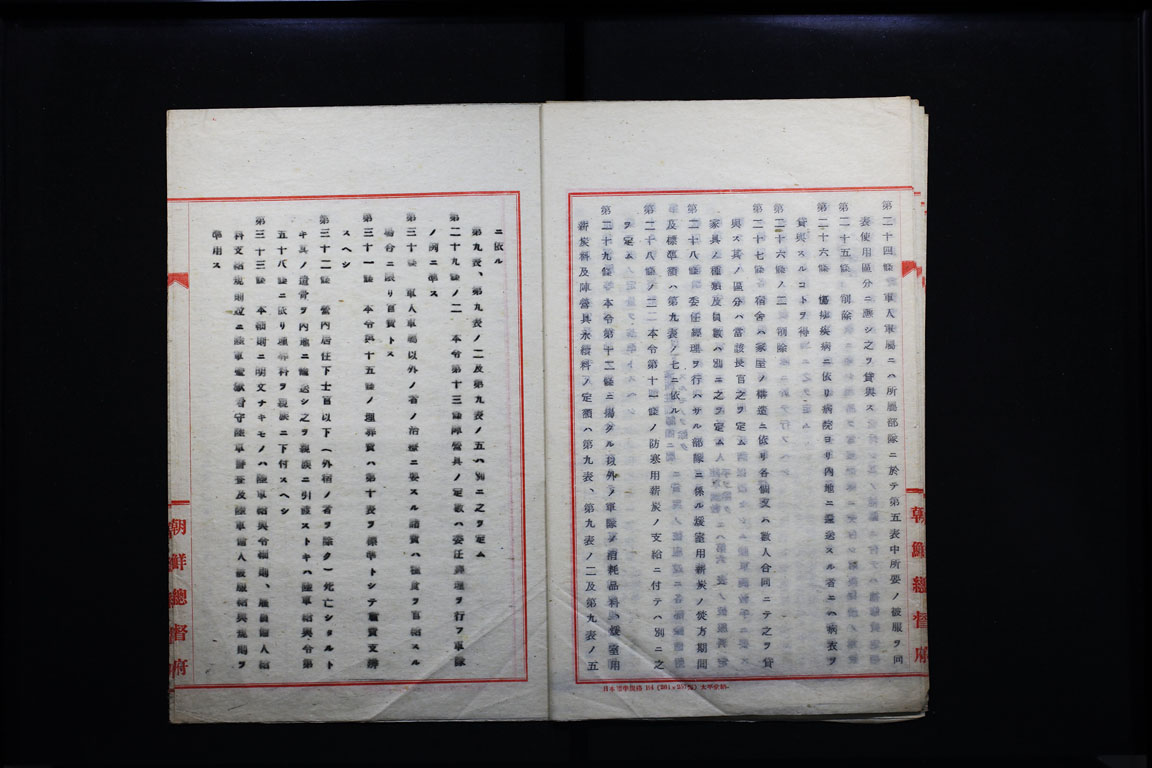 第二十四條　軍人軍屬ニハ所屬部隊ニ於テ第五表中所要ノ被服ヲ同
表使用區分ニ應シ之ヲ貸與ス
第二十五條　削除
第二十六條　傷痍疾病ニ依リ病院ヨリ內地ニ還送スル者ニハ病衣ヲ
貸與スルコトヲ得
第二十六條ノ二　削除
第二十七條　宿舍ハ家屋ノ構造ニ依リ各個又ハ數人合同ニテ之ヲ貸
與ス其ノ區分ハ當該長官之ヲ定ム
家具ノ種類及員數ハ別ニ之ヲ定ム
第二十八條　委任經理ヲ行ハサル部隊ニ係ル煖室用薪炭ノ焚方期間
及標準額ハ第九表ノ七ニ依ル
第二十八條ノ二　本令第十一條ノ防寒用薪炭ノ支給ニ付テハ別ニ之
ヲ定ム
第二十九條　本令第十二條ニ揭クル以外ノ軍隊ノ消耗品料、煖室用
薪炭料及陣營具永續料ノ定額ハ第九表、第九表ノ二及第九表ノ五
ニ依ル
第九表、第九表ノ二及第九表ノ五ハ別ニ之ヲ定ム
第二十九條ノ二　本令第十三條陣營具ノ定數ハ委任經理ヲ行フ軍隊
ノ例ニ準ス
第三十條　軍人軍屬以外ノ者ノ治療ニ要スル諸費ハ糧食ヲ官給スル
場合ニ限リ官費トス
第三十一條　本令第十五條ノ埋葬費ハ第十表ヲ標準トシテ實費支辨
スヘシ
第三十二條　營內居住下士官以下（外宿ノ者ヲ除ク）死亡シタルト
キ其ノ遺骨ヲ內地ニ輸送シ之ヲ親族ニ引渡ストキハ陸軍給與令第
五十八條ニ依リ埋葬料ヲ親族ニ下付スヘシ
第三十三條　本細則ニ明文ナキモノハ陸軍給與令細則、雇員傭人給
料支給規則竝ニ陸軍監獄看守陸軍警査及陸軍傭人被服給與規則ヲ
準用ス
朝鮮總督府
朝鮮總督府